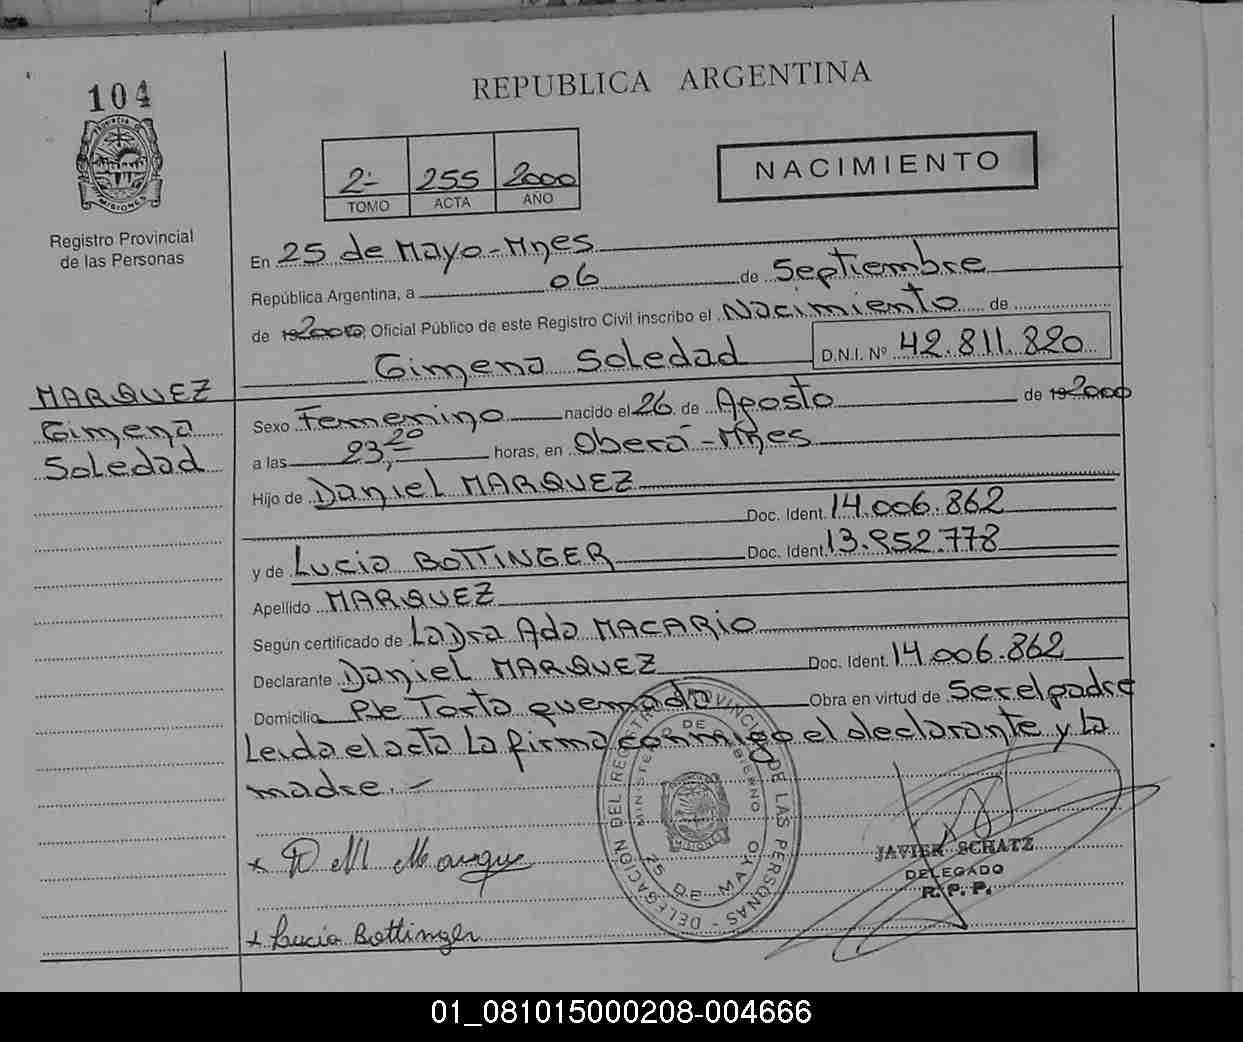 104
REPUBLICA ARGENTINA
PROVINCIA DE MISIONES
Registro Provincial
de las Personas
2- 255 2000
TOMO ACTA AÑO
NACIMIENTO
En 25 de Mayo-Mnes
República Argentina, a 06 de Septiembre
de 192000, Oficial Público de este Registro Civil inscribo el Nacimiento de
Gimena Soledad D.N.I. Nº 42.811.820
MARQUEZ
Gimena
Soledad
Sexo Femenino nacido el 26 de Agosto de 192000
a las 23,20 horas, en Oberá-Mnes
Hijo de Daniel MARQUEZ
Doc. Ident. 14.006.862
y de Lucia BOTTINGER Doc. Ident. 13.952.778
Apellido MARQUEZ
Según certificado de Ladra Ada MACARIO
Declarante Daniel MARQUEZ Doc. Ident. 14.006.862
Domicilio Pje Torta quemada Obra en virtud de Ser el padre
Leida el acta La firma conmigo el declarante y La
madre.-
DELEGACION DEL REGISTRO PROVINCIAL DE LAS PERSONAS -
MINISTERIO DE GOBIERNO
MISIONES
25 DE MAYO
JAVIER SCHATZ
DELEGADO
R. P. P.
x Lucia Bottinger
01_081015000208-004666